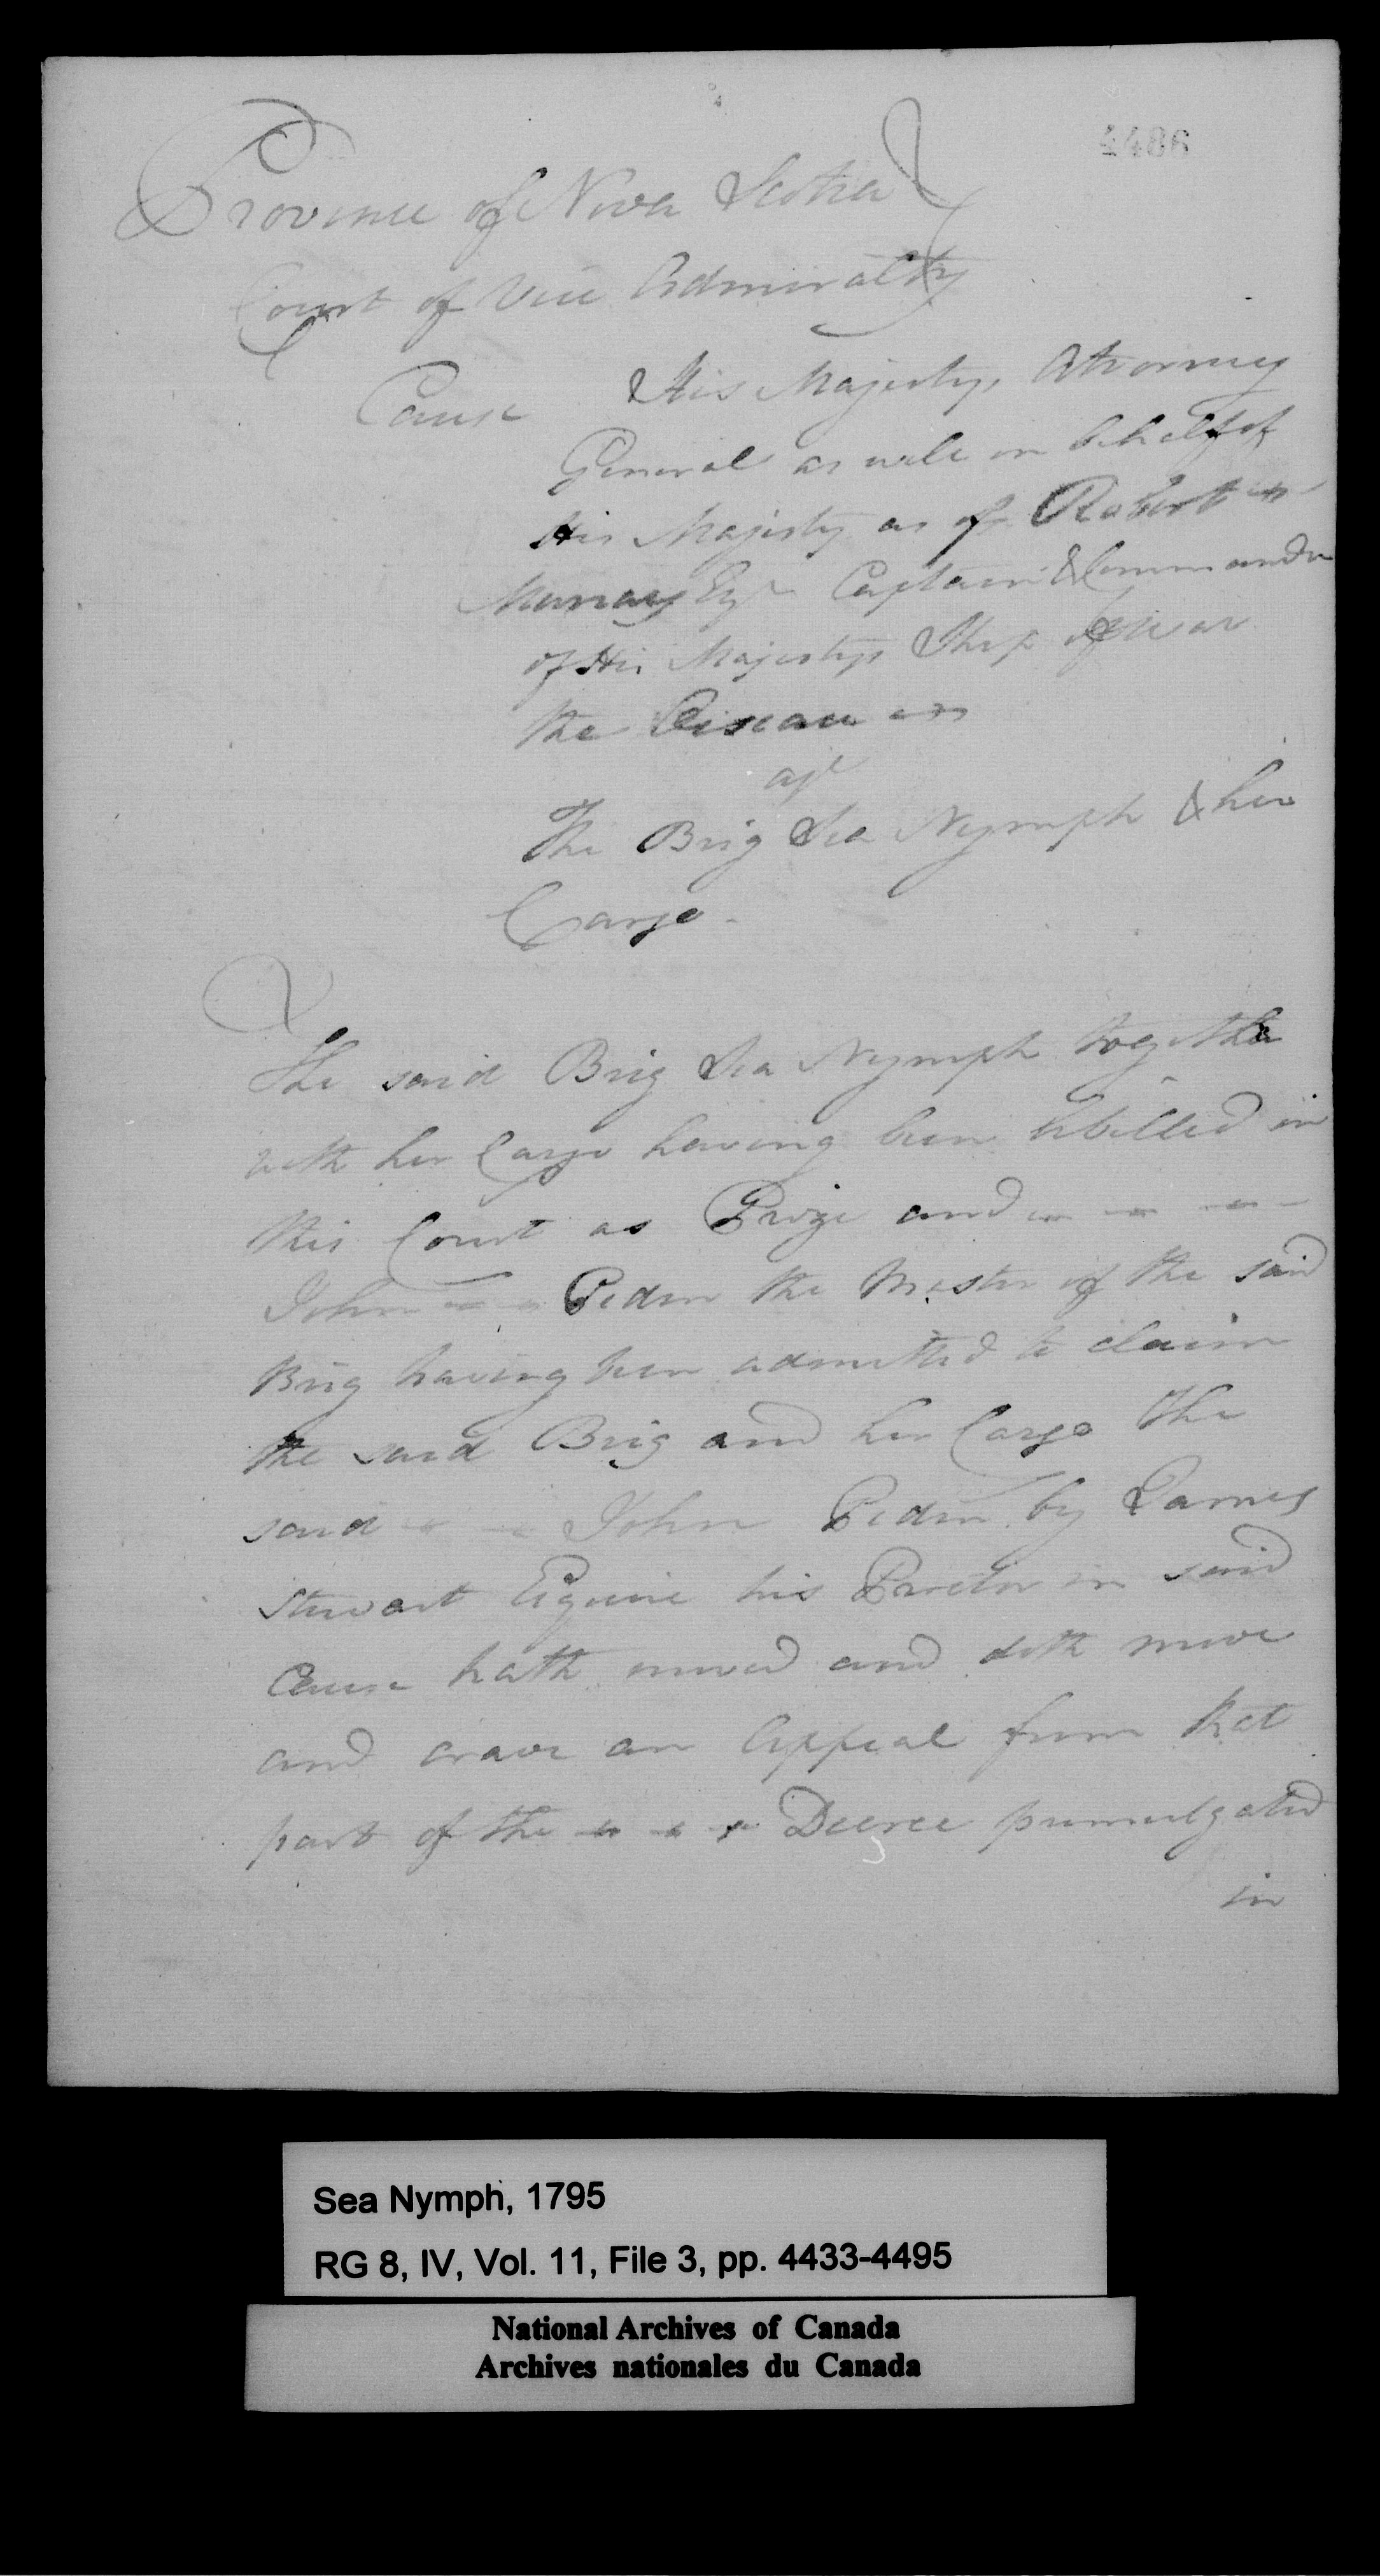 4486
Province of Nova Scotia
Court of Vice Admiralty
Cause His Majestys Attorney
General as well on behalf of
His Majesty as of Robert
Murray Esqr Captain & Commander
of His Majestys Ship of War
the Oiseau
agt
The Brig Sea Nymph & her
Cargo -
The said Brig Sea Nymph together
with her Cargo having been libelled in
this Court as Prize and
John Peden the Master of the said
Brig having been admitted to claim
the said Brig and her Cargo The
said John Peden by James
Stewart Esquire his Proctor in said
Cause hath moved and doth move
and crave an Appeal from that
part of the Decree promulgated
in
Sea Nymph, 1795
RG 8, IV, Vol. 11, File 3, pp. 4433-4495
National Archives of Canada
Archives nationales du Canada